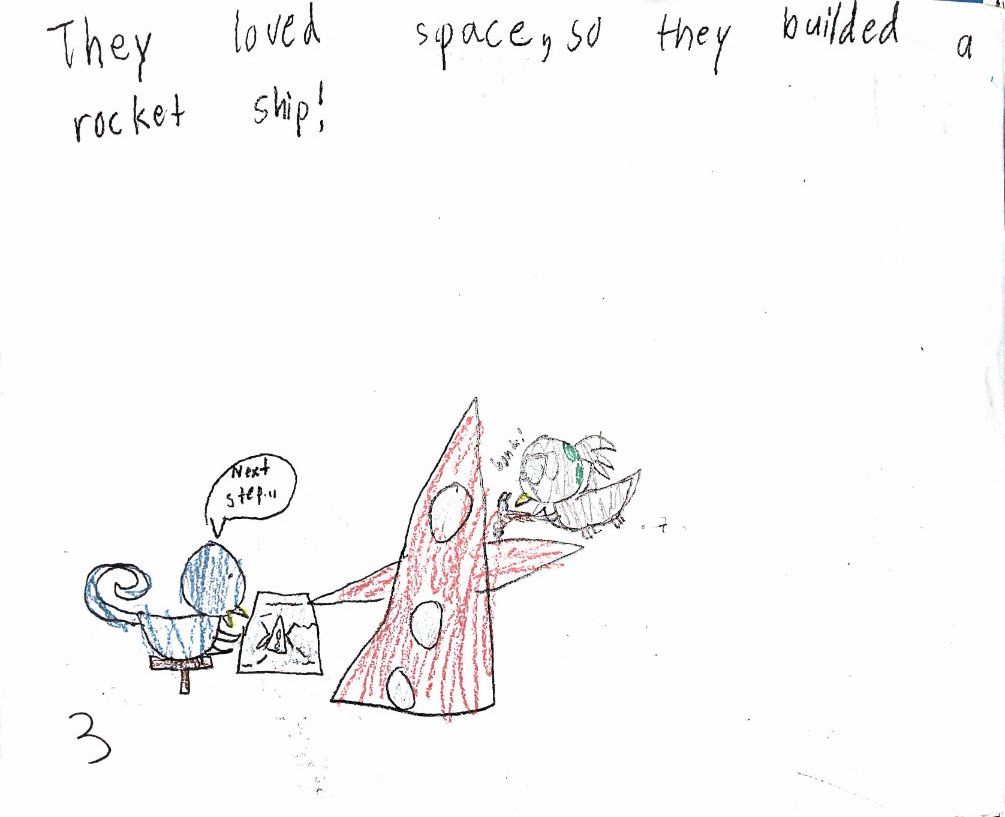 They loved space, so they builded a
rocket ship!
Next
step...
3